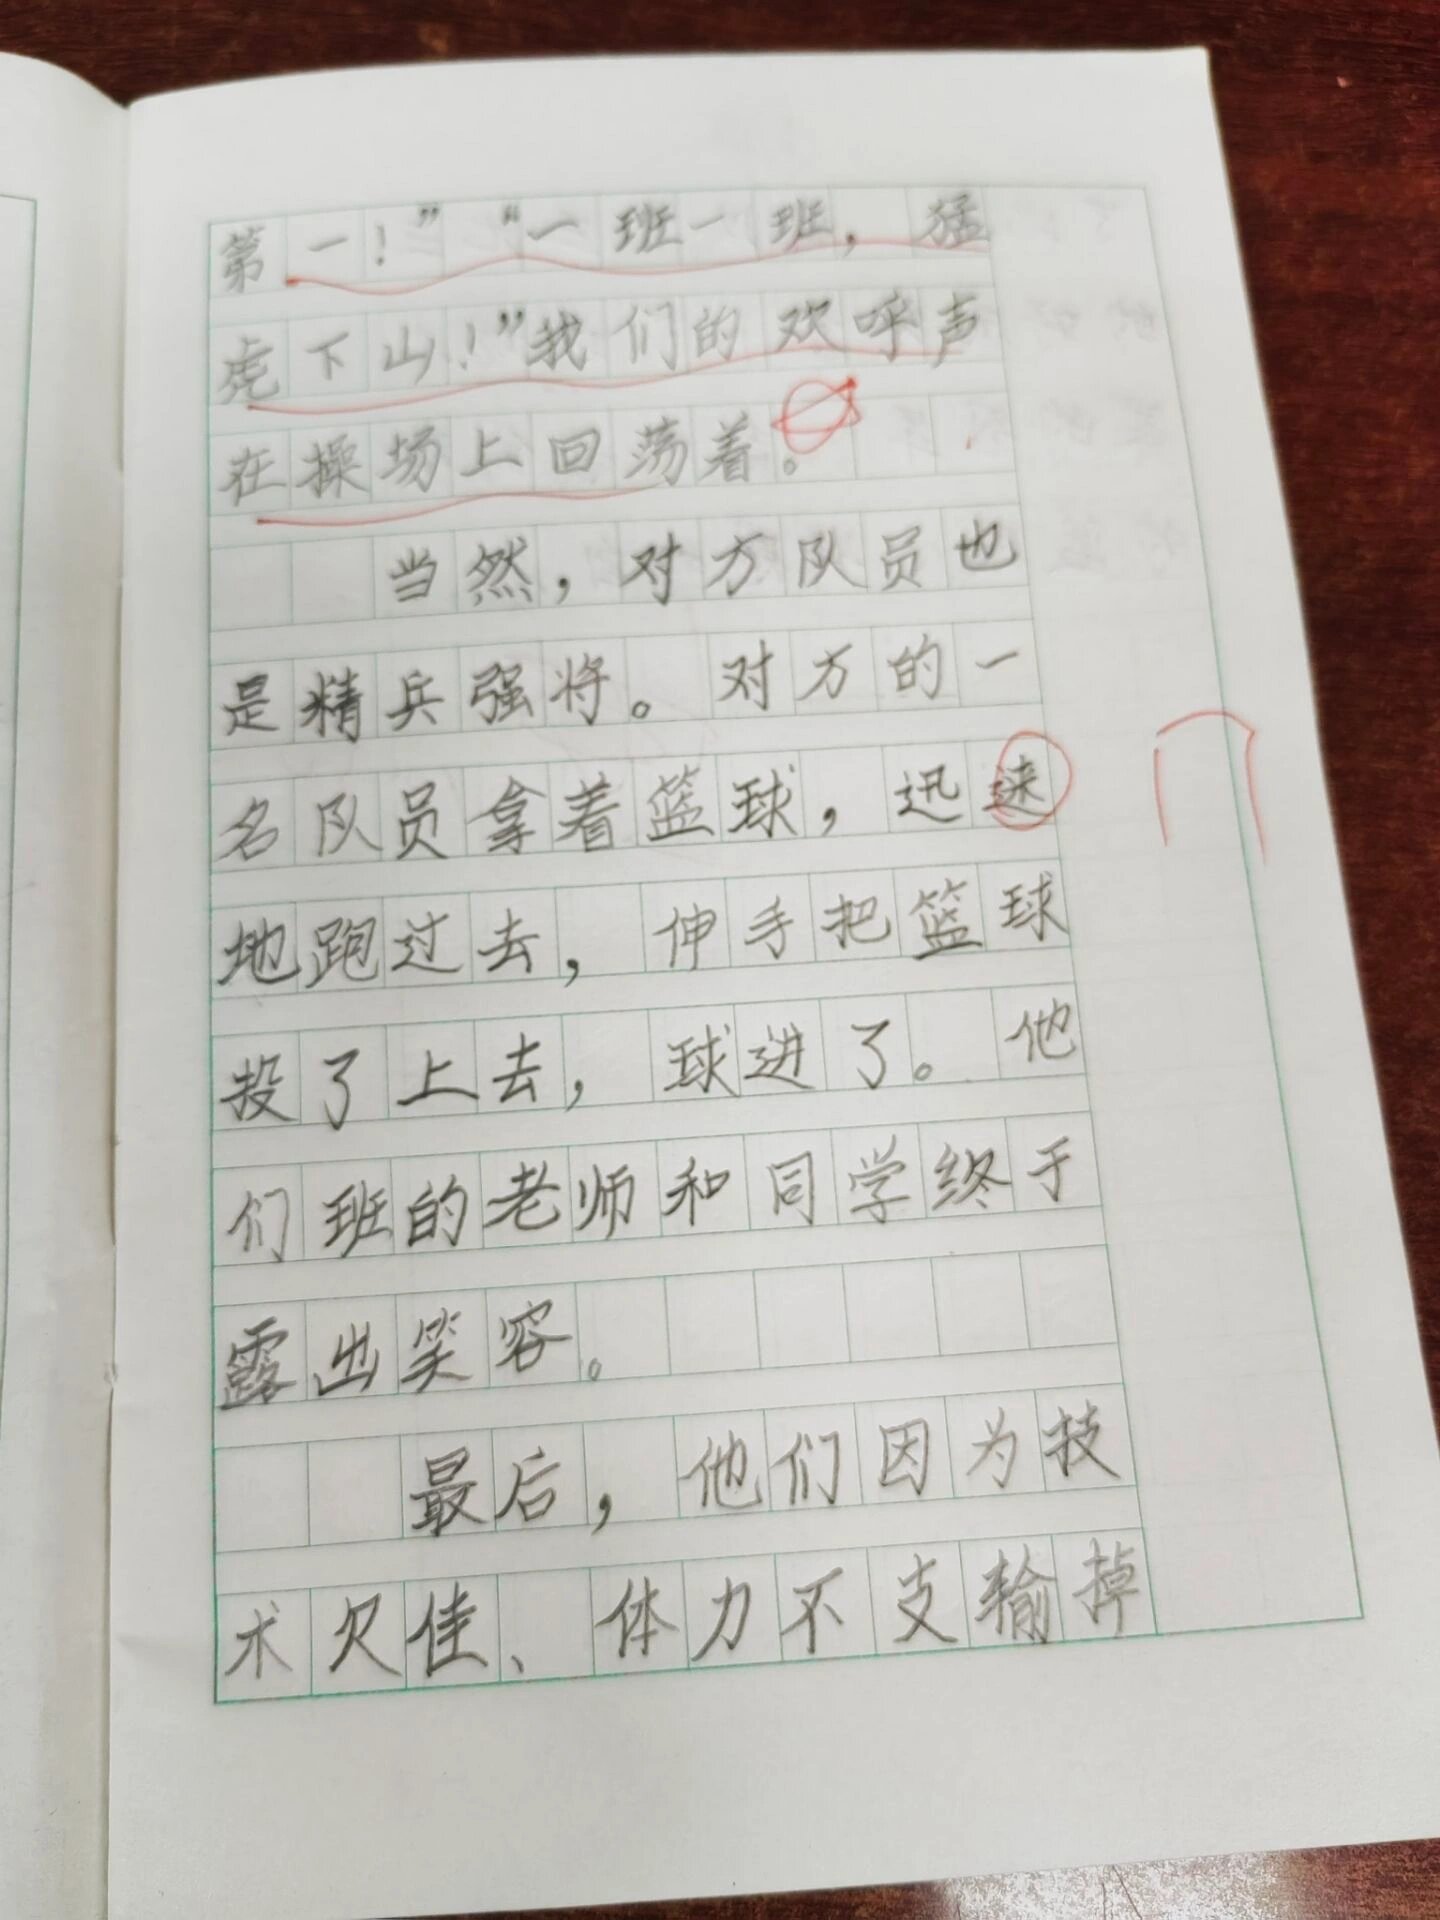 第一！”“一班一班，猛
虎下山！”我们的欢呼声
在操场上回荡着。
当然，对方队员也
是精兵强将。对方的一
名队员拿着篮球，迅速
地跑过去，伸手把篮球
投了上去，球进了。他
们班的老师和同学终于
露出笑容。
最后，他们因为技
术欠佳、体力不支输掉